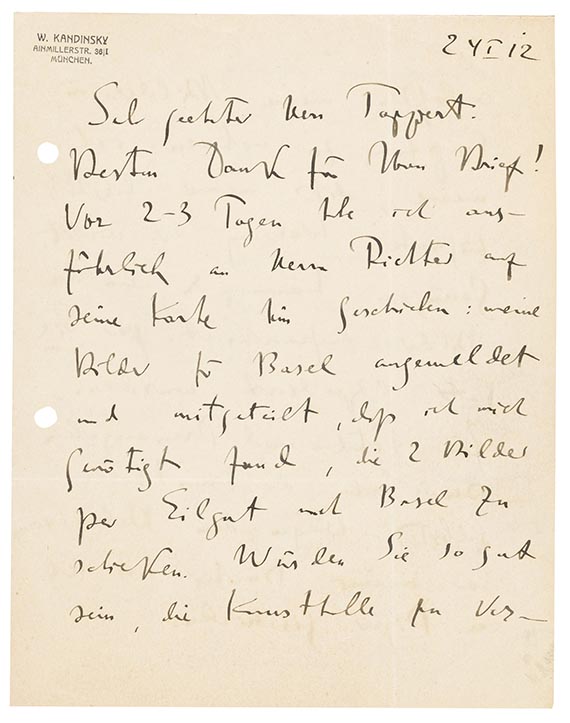 W. KANDINSKY
AINMILLERSTR. 36/I
MÜNCHEN.
24 I 12
Sehr geehrter Herr Tappert.
Besten Dank für Ihren Brief!
Vor 2–3 Tagen habe ich aus-
führlich an Herrn Richter auf
seine Karte hin geschrieben: meine
Bilder für Basel angemeldet
und mitgeteilt, daß ich mich
genötigt fand, die 2 Bilder
per Eilgut nach Basel zu
schicken. Würden Sie so gut
sein, die Kunsthalle zu Ver-